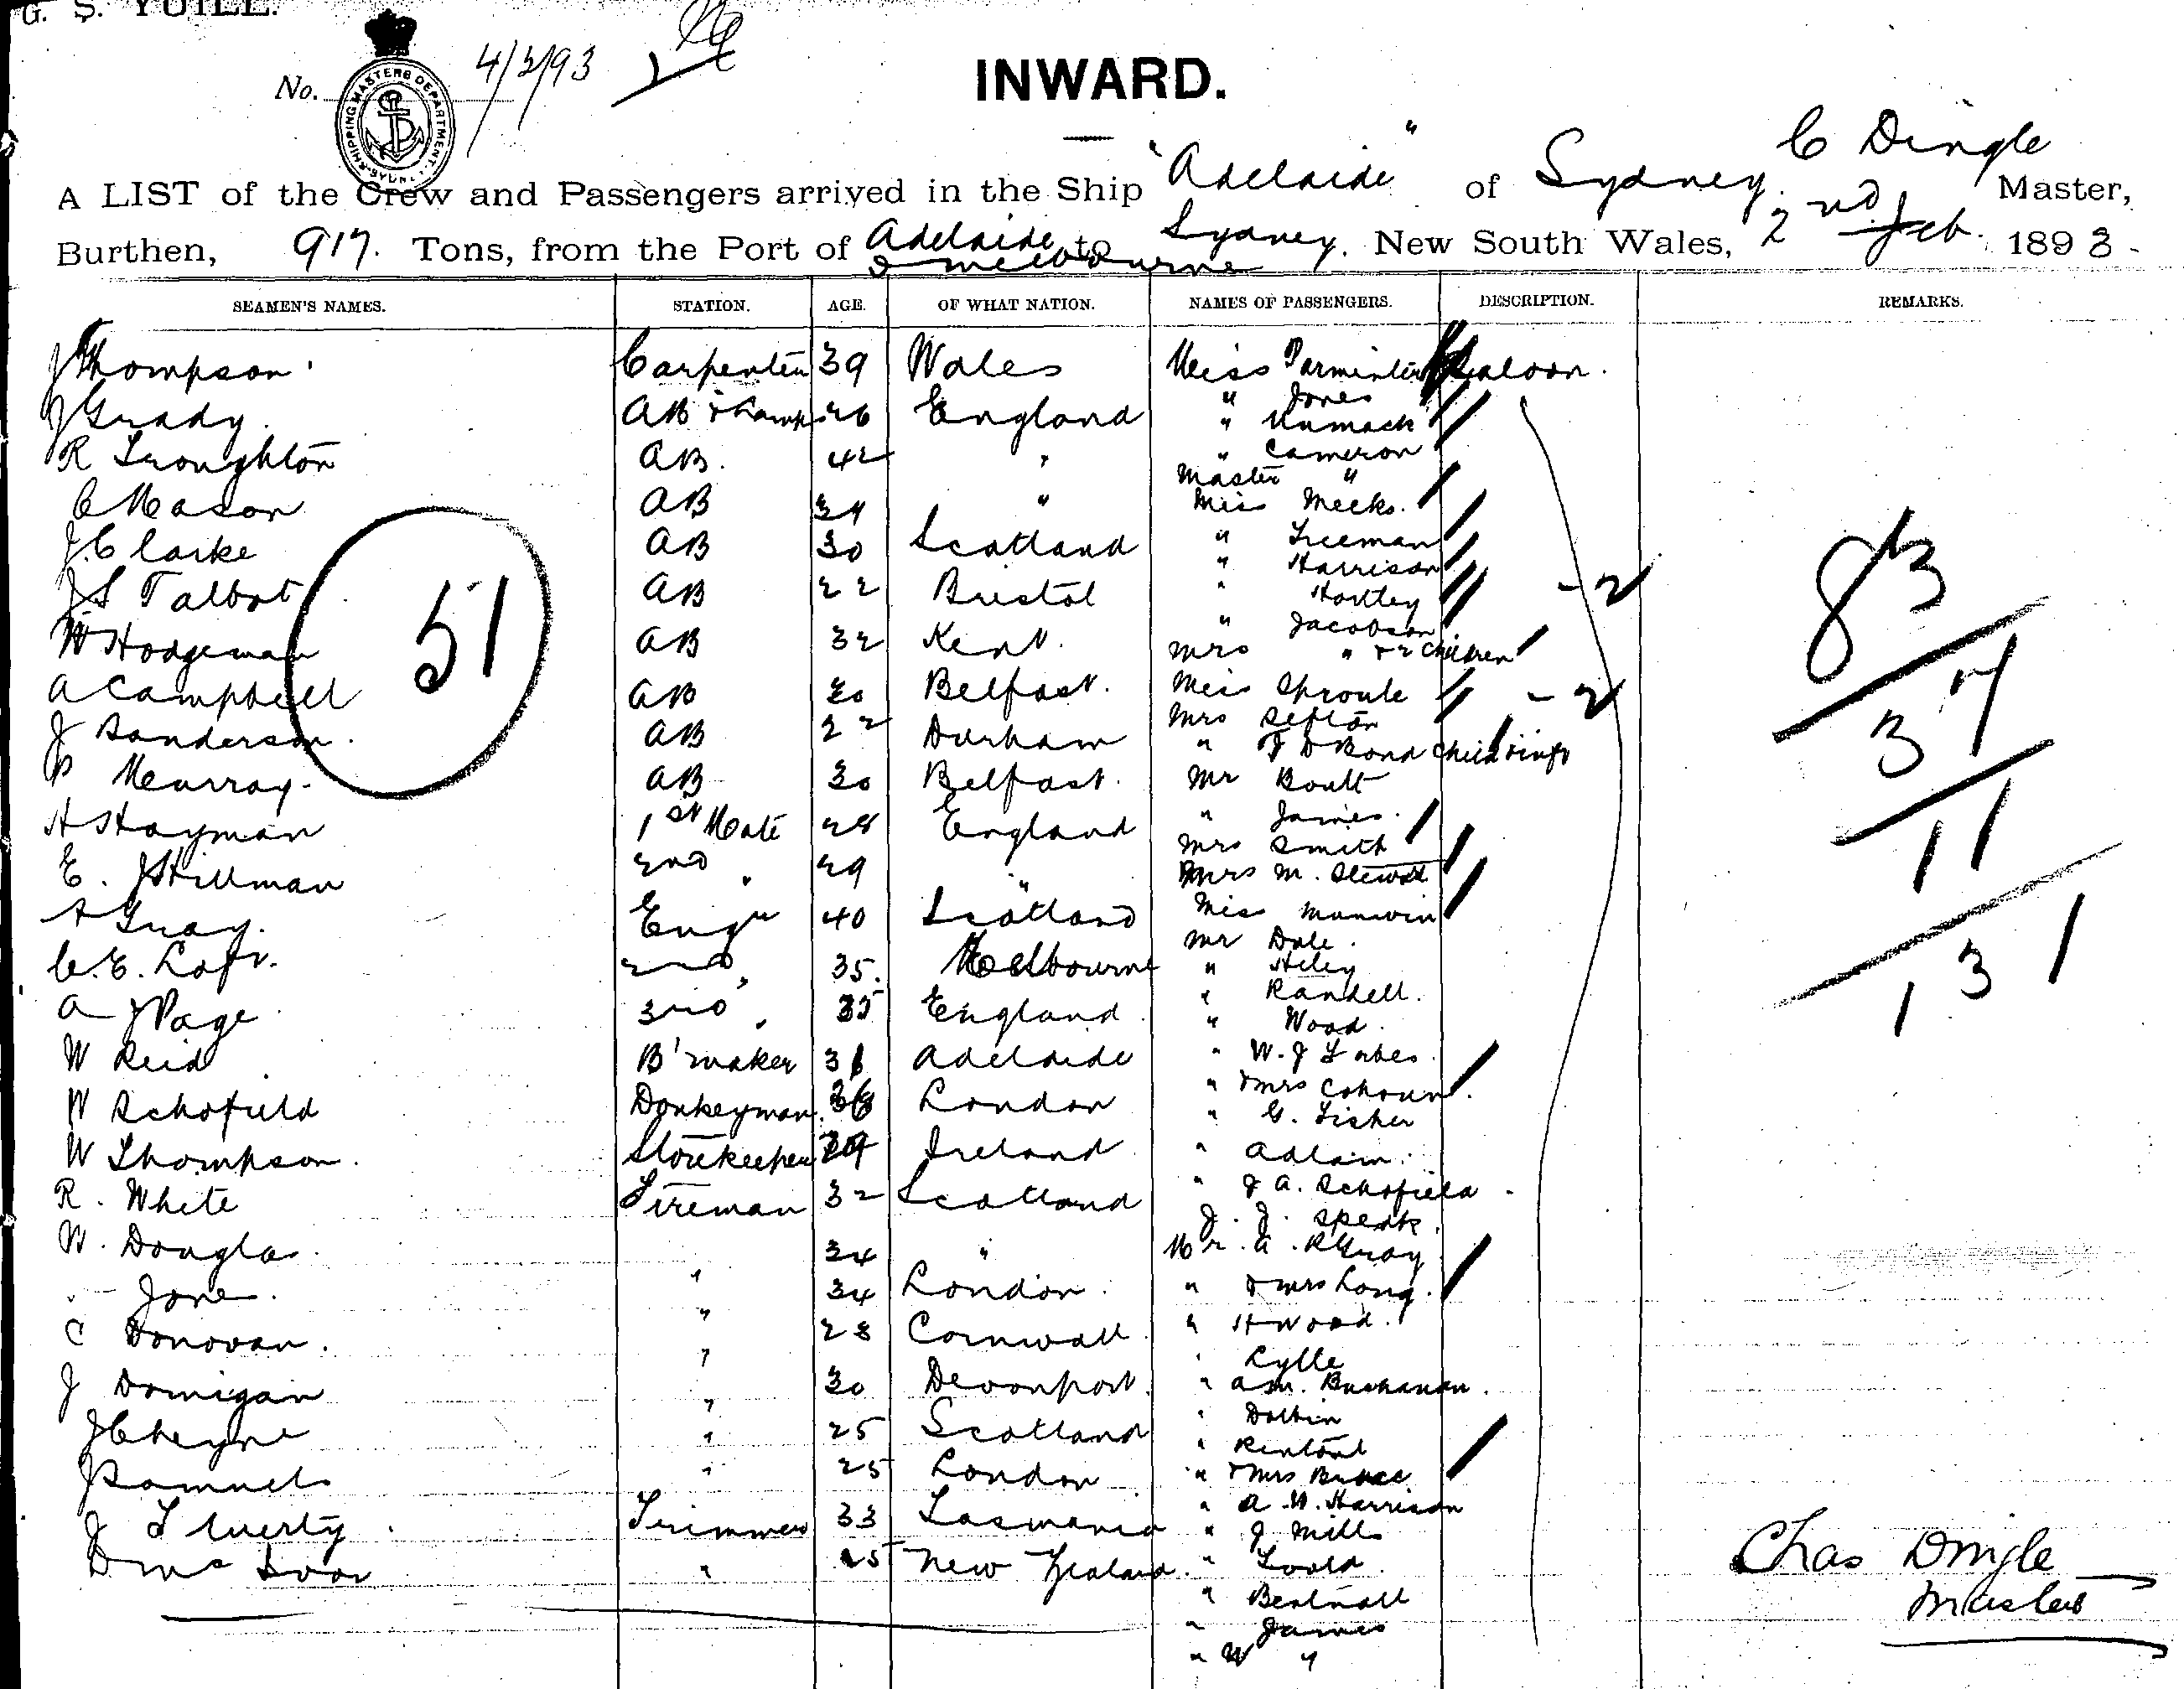 G. S. YUILL.
No. 4/2/93
SHIPPING MASTERS DEPARTMENT. SYDNEY
INWARD.
A LIST of the Crew and Passengers arrived in the Ship "Adelaide" of Sydney. C Dingle Master,
Burthen, 917. Tons, from the Port of Adelaide & Melbourne to Sydney. New South Wales, 2nd Feb. 1893
SEAMEN'S NAMES. STATION. AGE. OF WHAT NATION. NAMES OF PASSENGERS. DESCRIPTION. REMARKS.
J Thompson Carpenter 39 Wales
J Grady AB & Lamps 26 England
R Troughton AB. 42 "
C Mason AB 34 "
J. Clarke AB 30 Scotland
J S Talbot AB 22 Bristol
W Hodgeman AB 32 Kent.
A Campbell AB 20 Belfast.
J Sanderson. AB 22 Durham
P Murray. AB 30 Belfast.
H Hayman 1st Mate 28 England
E. J Hillman 2nd " 29 "
A Gray. Engr 40 Scotland
C. E. Loft. 2nd " 35. Melbourne
A J Page 3rd " 35 England
W Reid B'maker 36 Adelaide
W Schofield Donkeyman 36 London
W Thompson. Storekeeper 29 Ireland
R. White Fireman 32 Scotland
W. Douglas. " 34 "
Jone. " 34 London.
C Donovan. " 28 Cornwall
J Dornigan " 30 Devonport.
J Cheyne " 25 Scotland
J Samuels " 25 London
J Fluerty Trimmers 33 Tasmania
" 25 New Zealand.
51
Miss Parminter Saloon.
" Jones
" Unmack
" Cameron
Master "
Miss Meeks.
" Freeman
" Harrison
" Hartley - 2
" Jacobson
Mrs " & 2 Children
Miss Sproule - 2
Mrs Sefton
" J D Bond child & inft
Mr Boult
" James.
Mrs Smith
Mrs M. Stewart
Miss Manwin
Mr Dale.
" Heley
" Randell.
" Wood.
" W. J Fabes.
" & Mrs Cohoun.
" G. Fisher
" Adlam.
" J A. Schofield.
J. J. Speak.
Mr. A. R Gray
" & Mrs Long.
" H Wood.
" Lylle
" A M. Buchanan.
" Dolbin
" Rentoul
" & Mrs Bruce
" A. W. Harrison
" J. Mills
" Toold
" Bentnall
" James
" W "
83
37
11
131
Chas Dingle
Master